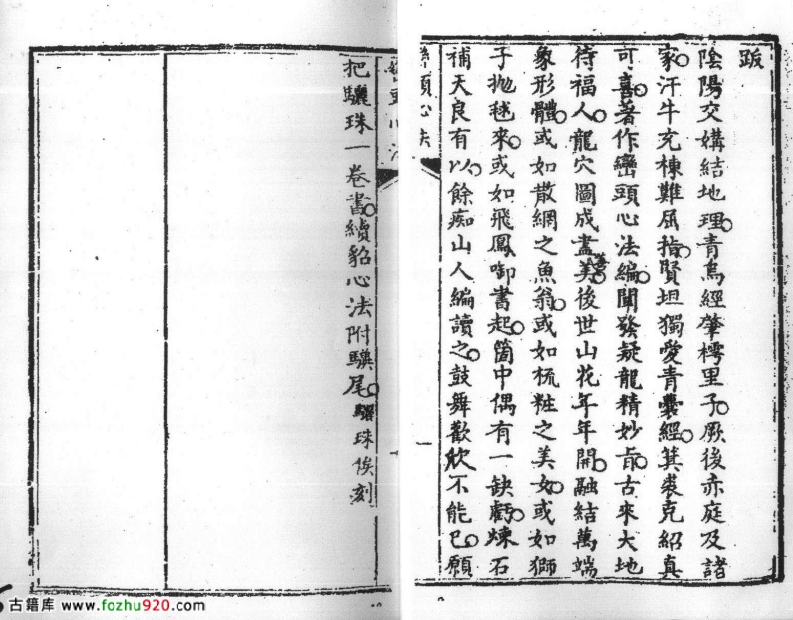 跋
陰陽交媾結地理青烏經肇樗里子厥後赤庭及諸
家汗牛充棟難屈指賢坦獨愛青囊經箕裘克紹真
可喜著作巒頭心法編闡發疑龍精妙旨古來大地
待福人龍穴圖成盡美後世山花年年開融結萬端
象形體或如散網之魚翁或如梳粧之美女或如獅
子拋毬來或如飛鳳啣書起箇中偶有一缺虧煉石
補天良有以餘痴山人編讀之鼓舞歡欣不能已願
巒頭心法
一
把驪珠一卷書續貂心法附驥尾驪珠俟刻
古籍库 www.fozhu920.com